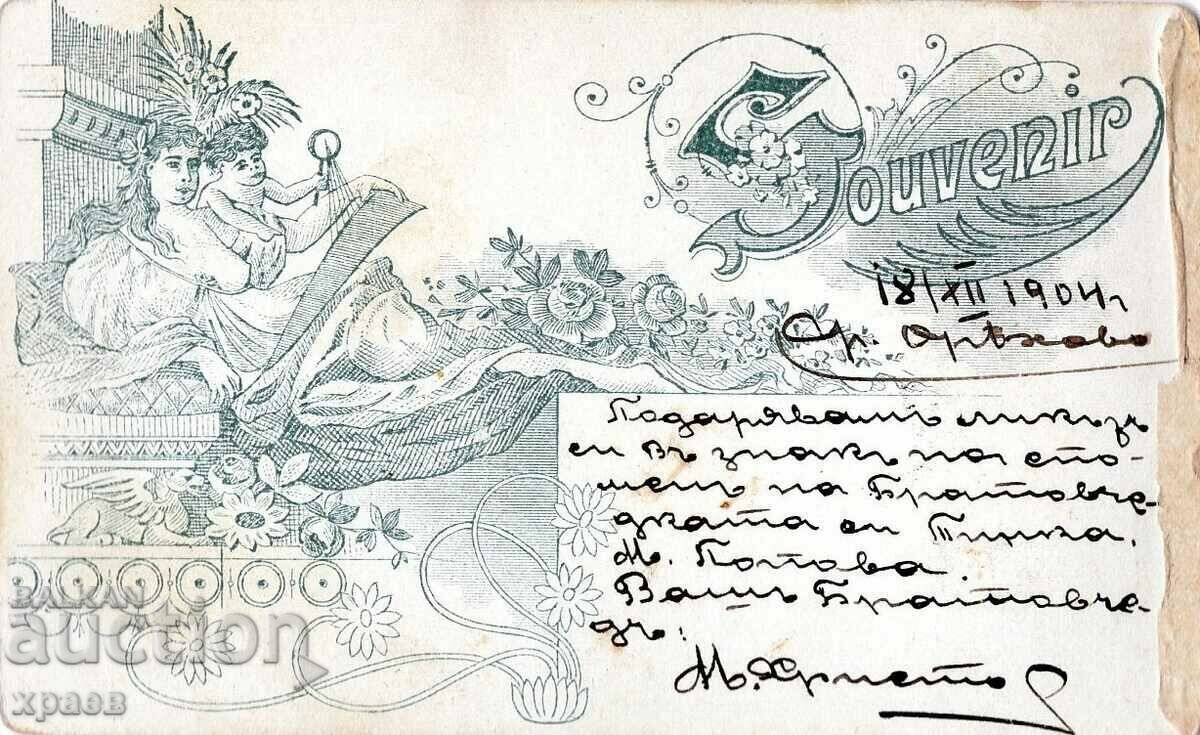 Souvenir
18/XII 1904 г
Гр. Орѣхово
Подарявамъ ликътъ
си въ знакъ на спо-
менъ на Братовче-
дката си Тинка.
М. Попова.
Вашъ Братовче-
дъ:
М. Христо
BALKAN
auction
храев